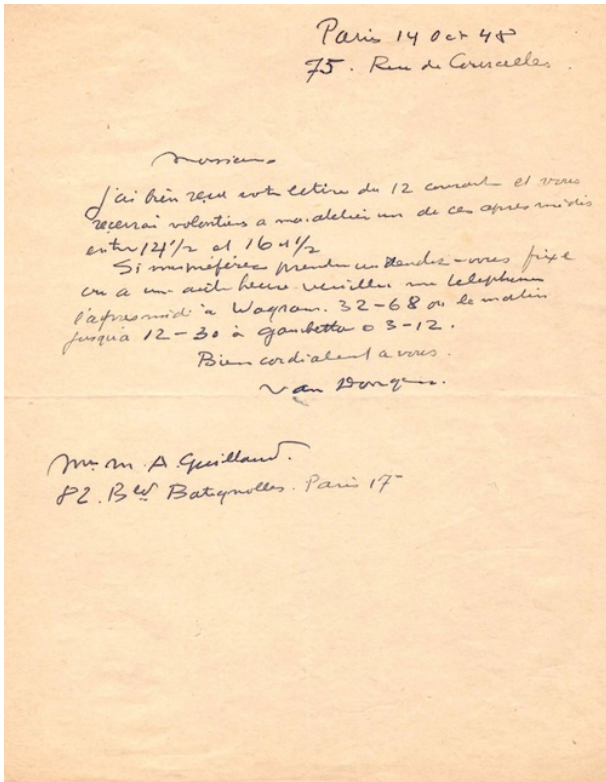 Paris 14 Oct 48
75. Rue de Courcelles.
Monsieur
j'ai bien reçu votre lettre du 12 courant et vous
recevrai volontiers a mon atelier un de ces apres midis
entre 14 1/2 et 16 h 1/2
Si vous préférez prendre un rendez-vous fixe
ou a une autre heure veuillez me telephoner
l'apres midi à Wagram. 32-68 ou le matin
jusqu'à 12-30 à gambetta 03-12.
Bien cordialement a vous.
Van Dongen.
Mr. M. A. Guillaud.
82. Bld Batignolles. Paris 17